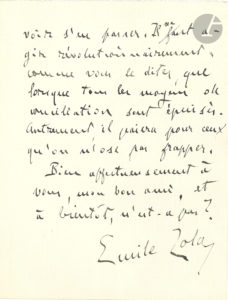 voir s'en passer. Il ne faut a-
gir révolutionnairement,
comme vous le dites, que
lorsque tous les moyens de
conciliation sont épuisés.
Autrement, il paiera pour ceux
qu'on n'ose pas frapper.
Bien affectueusement à
vous, mon bon ami, et
à bientôt, n'est-ce pas ?
Emile Zola